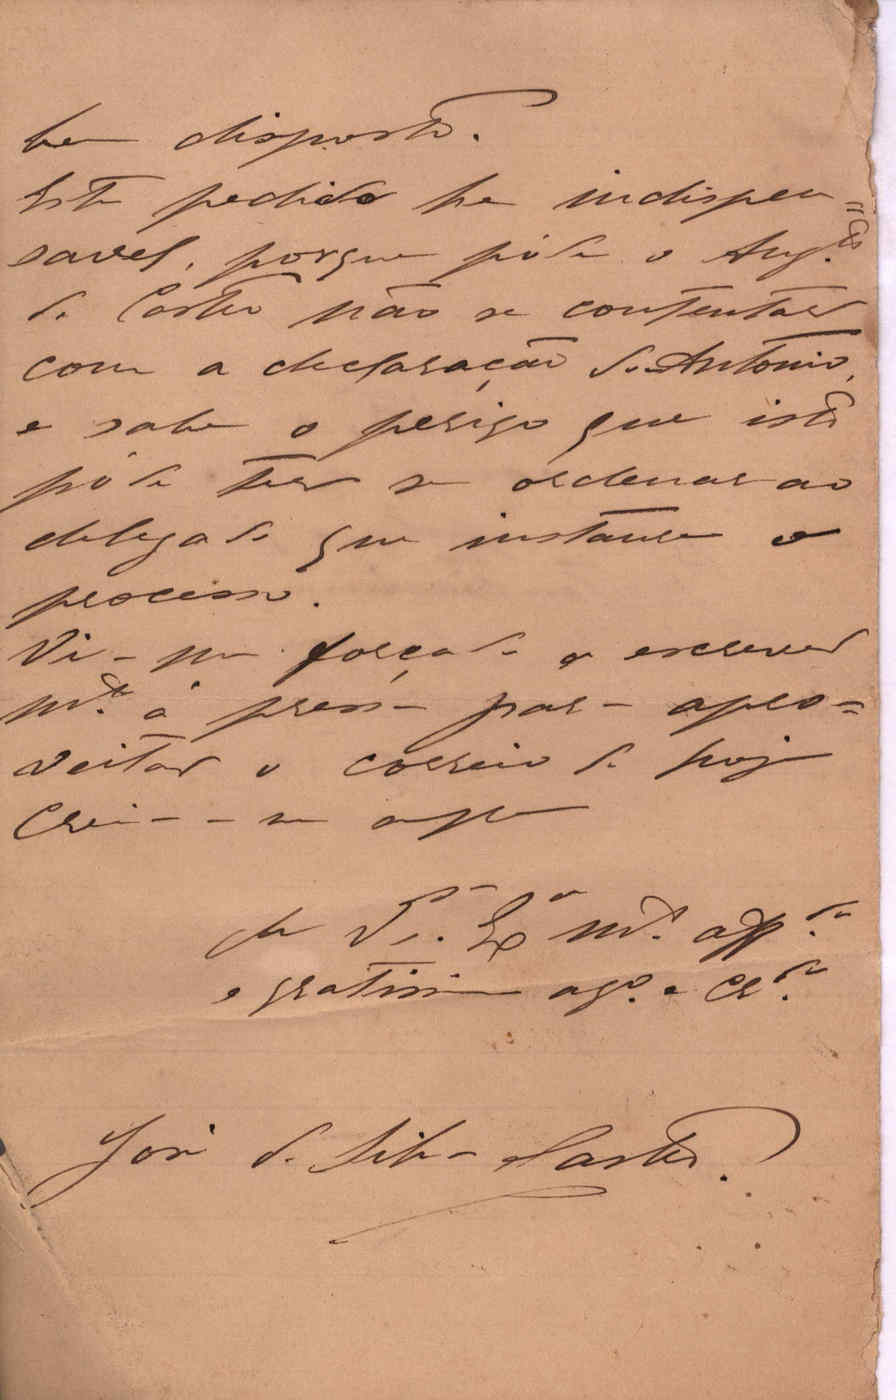 bem disposto.
Este pedido he indispen=
savel, porque póde o Aug.to
de Castro não se contentar
com a declaração do Antonio,
e sabe o perigo que isto
póde ter se ordenar ao
delegado que instaure o
processo.
Vi-me forçado a escrever
m.to á pressa para apro=
veitar o correio de hoje
Creia-me sempre
de V.ª Ex.ª m.to aff.do
e gratissimo am.º e cr.do
José da Silva Castro.